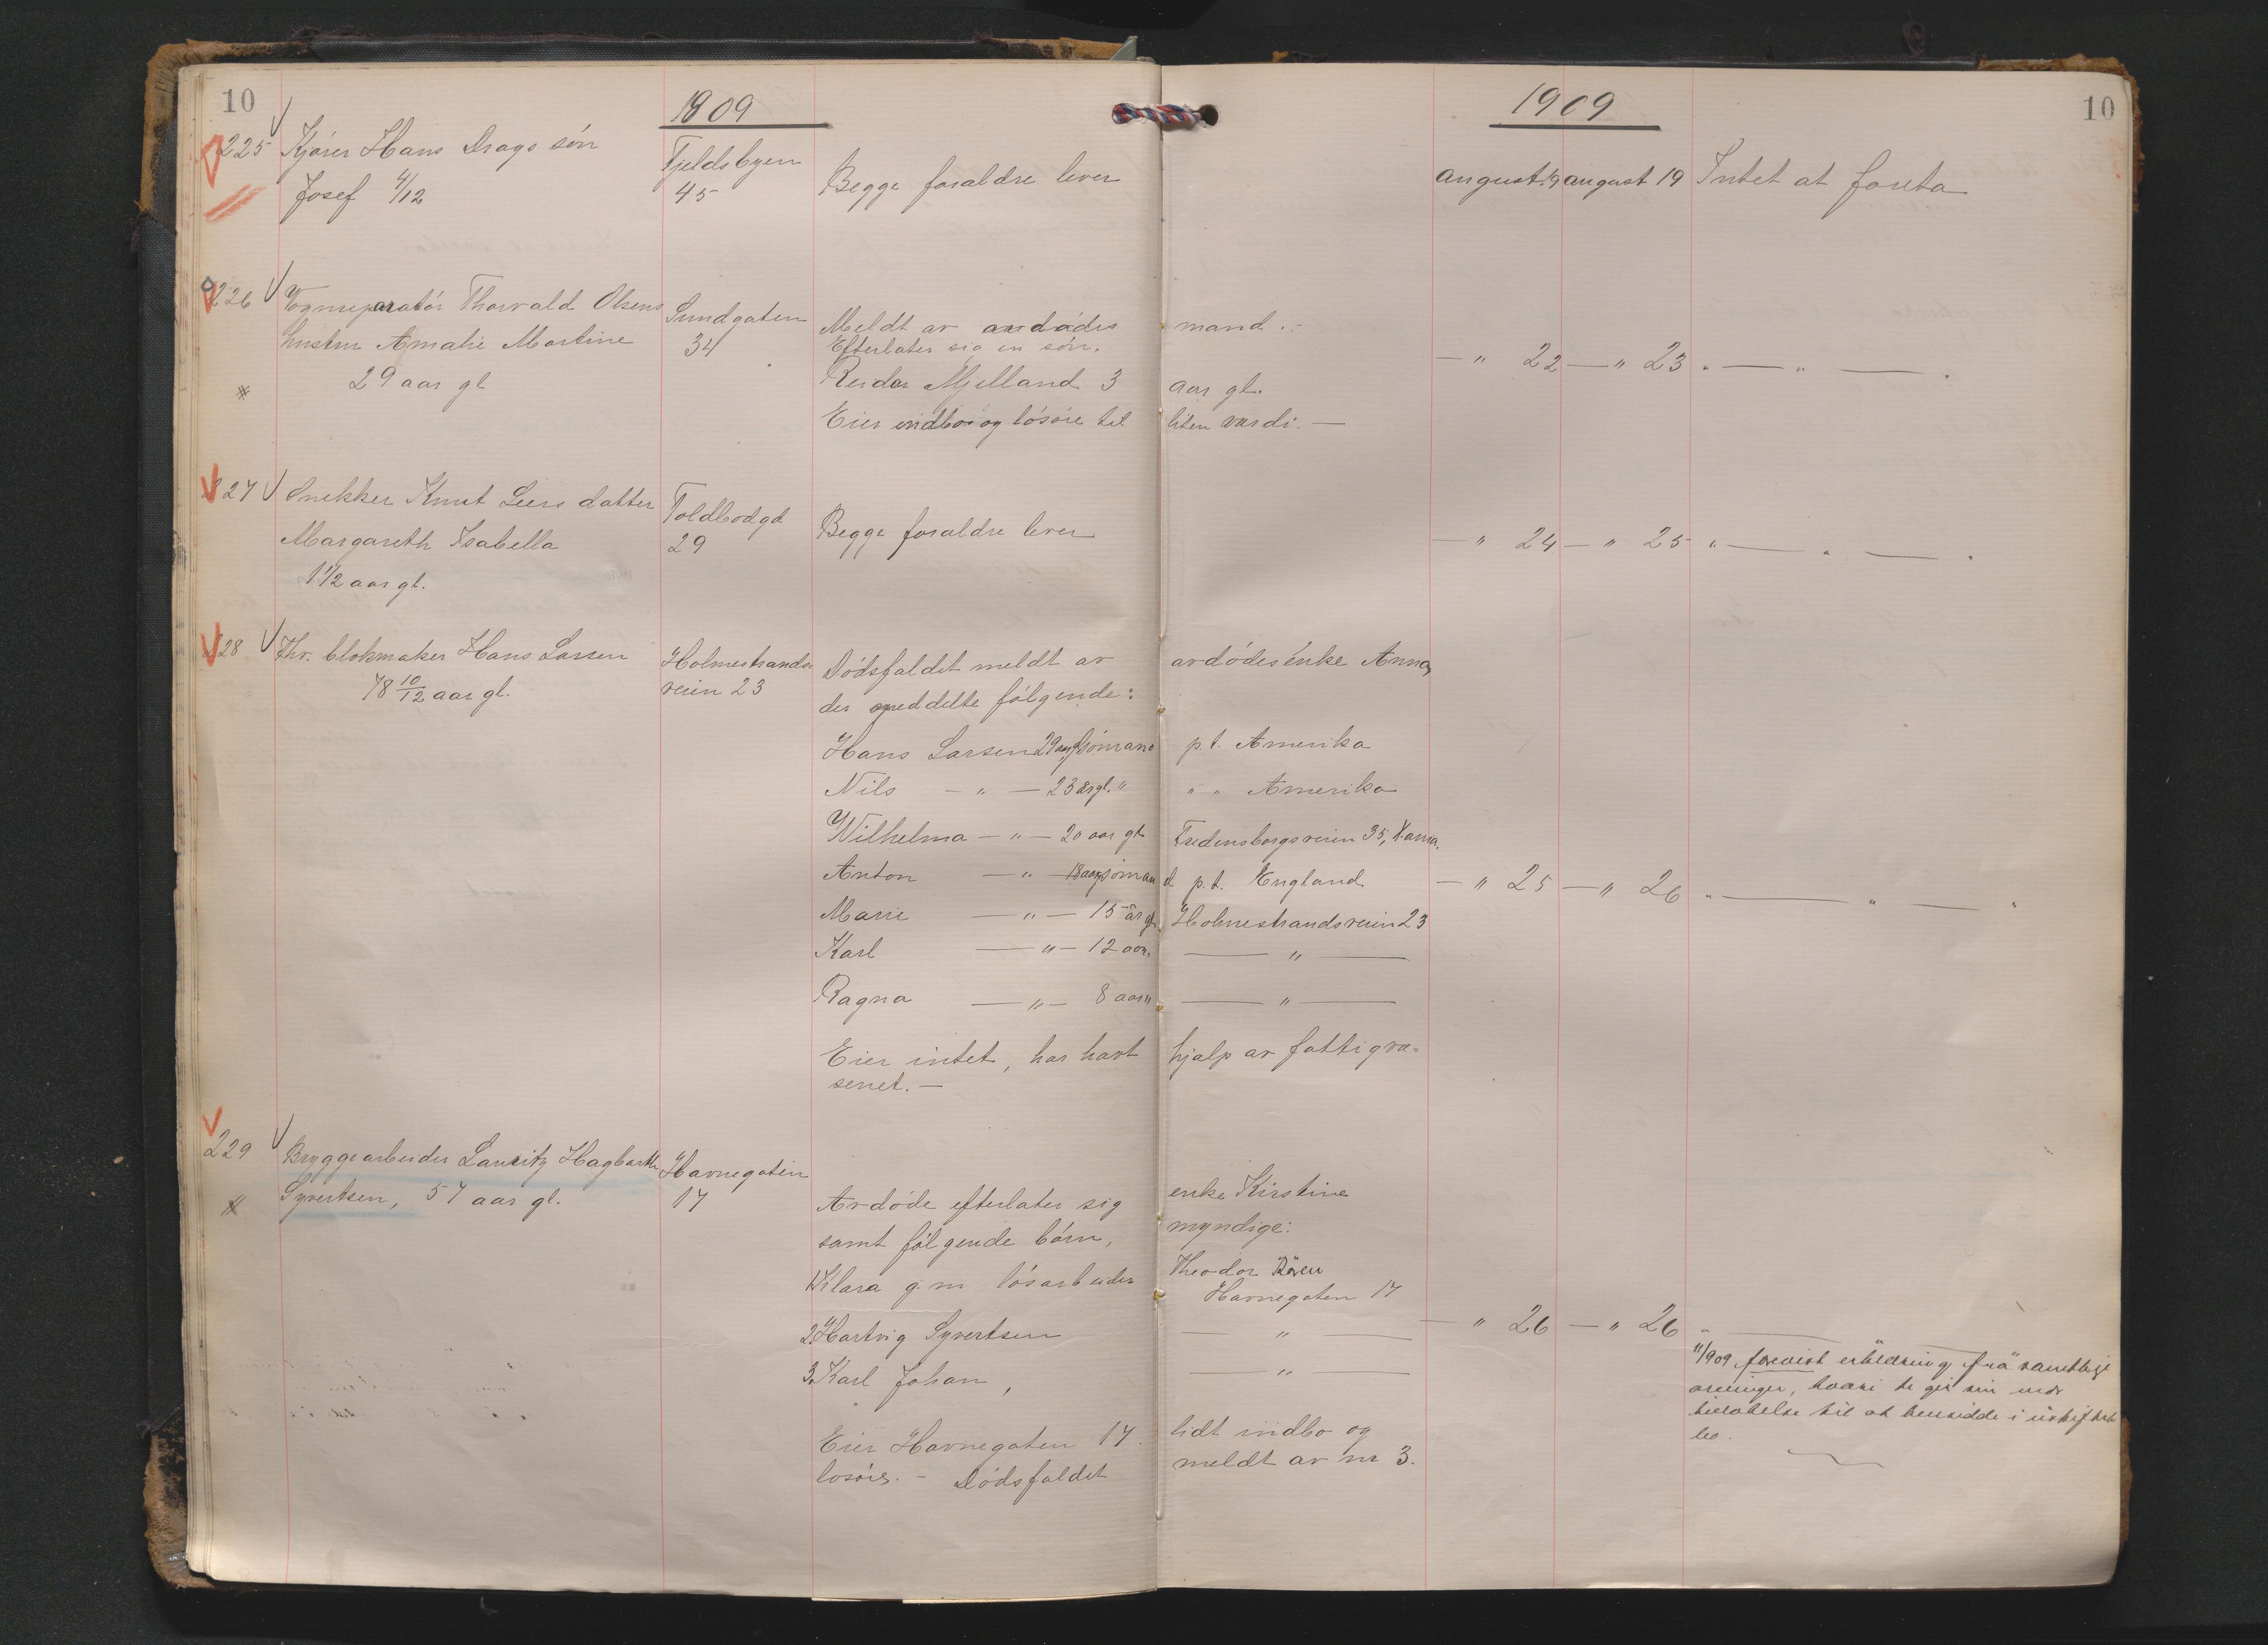 10 1909 1909 10
225 Kjører Hans Drags søn Fjeldsbyen Begge foraldre lever august 19 august 19 Intet at foreta
Josef 4/12 45
226 Vognreparatør Thorvald Olsens Sundgaten Meldt av avdødes mand.-
hustru Amalie Martine 34 Efterlater sig en søn.
29 aar gl Reidar Mjelland 3 aar gl. — " 22 — " 23 " — " —
Eier indbo og løsøre til liten værdi. —
227 Snekker Knut Leers datter Toldbodgd Begge foraldre lever — " 24 — " 25 " — " —
Margareth Isabella 29
1 1/2 aar gl.
228 Fhv. blokmaker Hans Larsen Holmestrands- Dødsfaldet meldt av avdødes enke Anna,
78 10/12 aar gl. veien 23 der meddelte følgende:
Hans Larsen 29 aar, sømand p.t. Amerika
Nils — " — 23 år gl. " " " Amerika
Wilhelma — " — 20 aar gl. Fredensborgsveien 35, X.ania.
Anton — " — 18 aar, sømand p.t. England — " 25 — " 26 " — " — "
Marie — " — 15 år gl. Holmestrandsveien 23
Karl — " — 12 aar. — " —
Ragna — " — 8 aar " — " —
Eier intet, har havt hjalp av fattigva-
senet. —
229 Bryggearbeider Lauritz Hagbarth Havnegaten
Syvertsen, 57 aar gl. 17 Avdøde efterlater sig enke Kirstine
samt følgende børn, myndige:
1. Klara g.m. løsarbeider Theodor
Havnegaten 17
2. Hartvig Syvertsen — " — — " 26 — " 26 " —
3. Karl Johan, — " —
11/909 forevist erklæring frå samtlige
arvinger, hvori de gir sin med-
til at hensidde i uskiftet
bo.
Eier Havnegaten 17. lidt indbo og
løsøre. - Dødsfaldet meldt av nr 3.